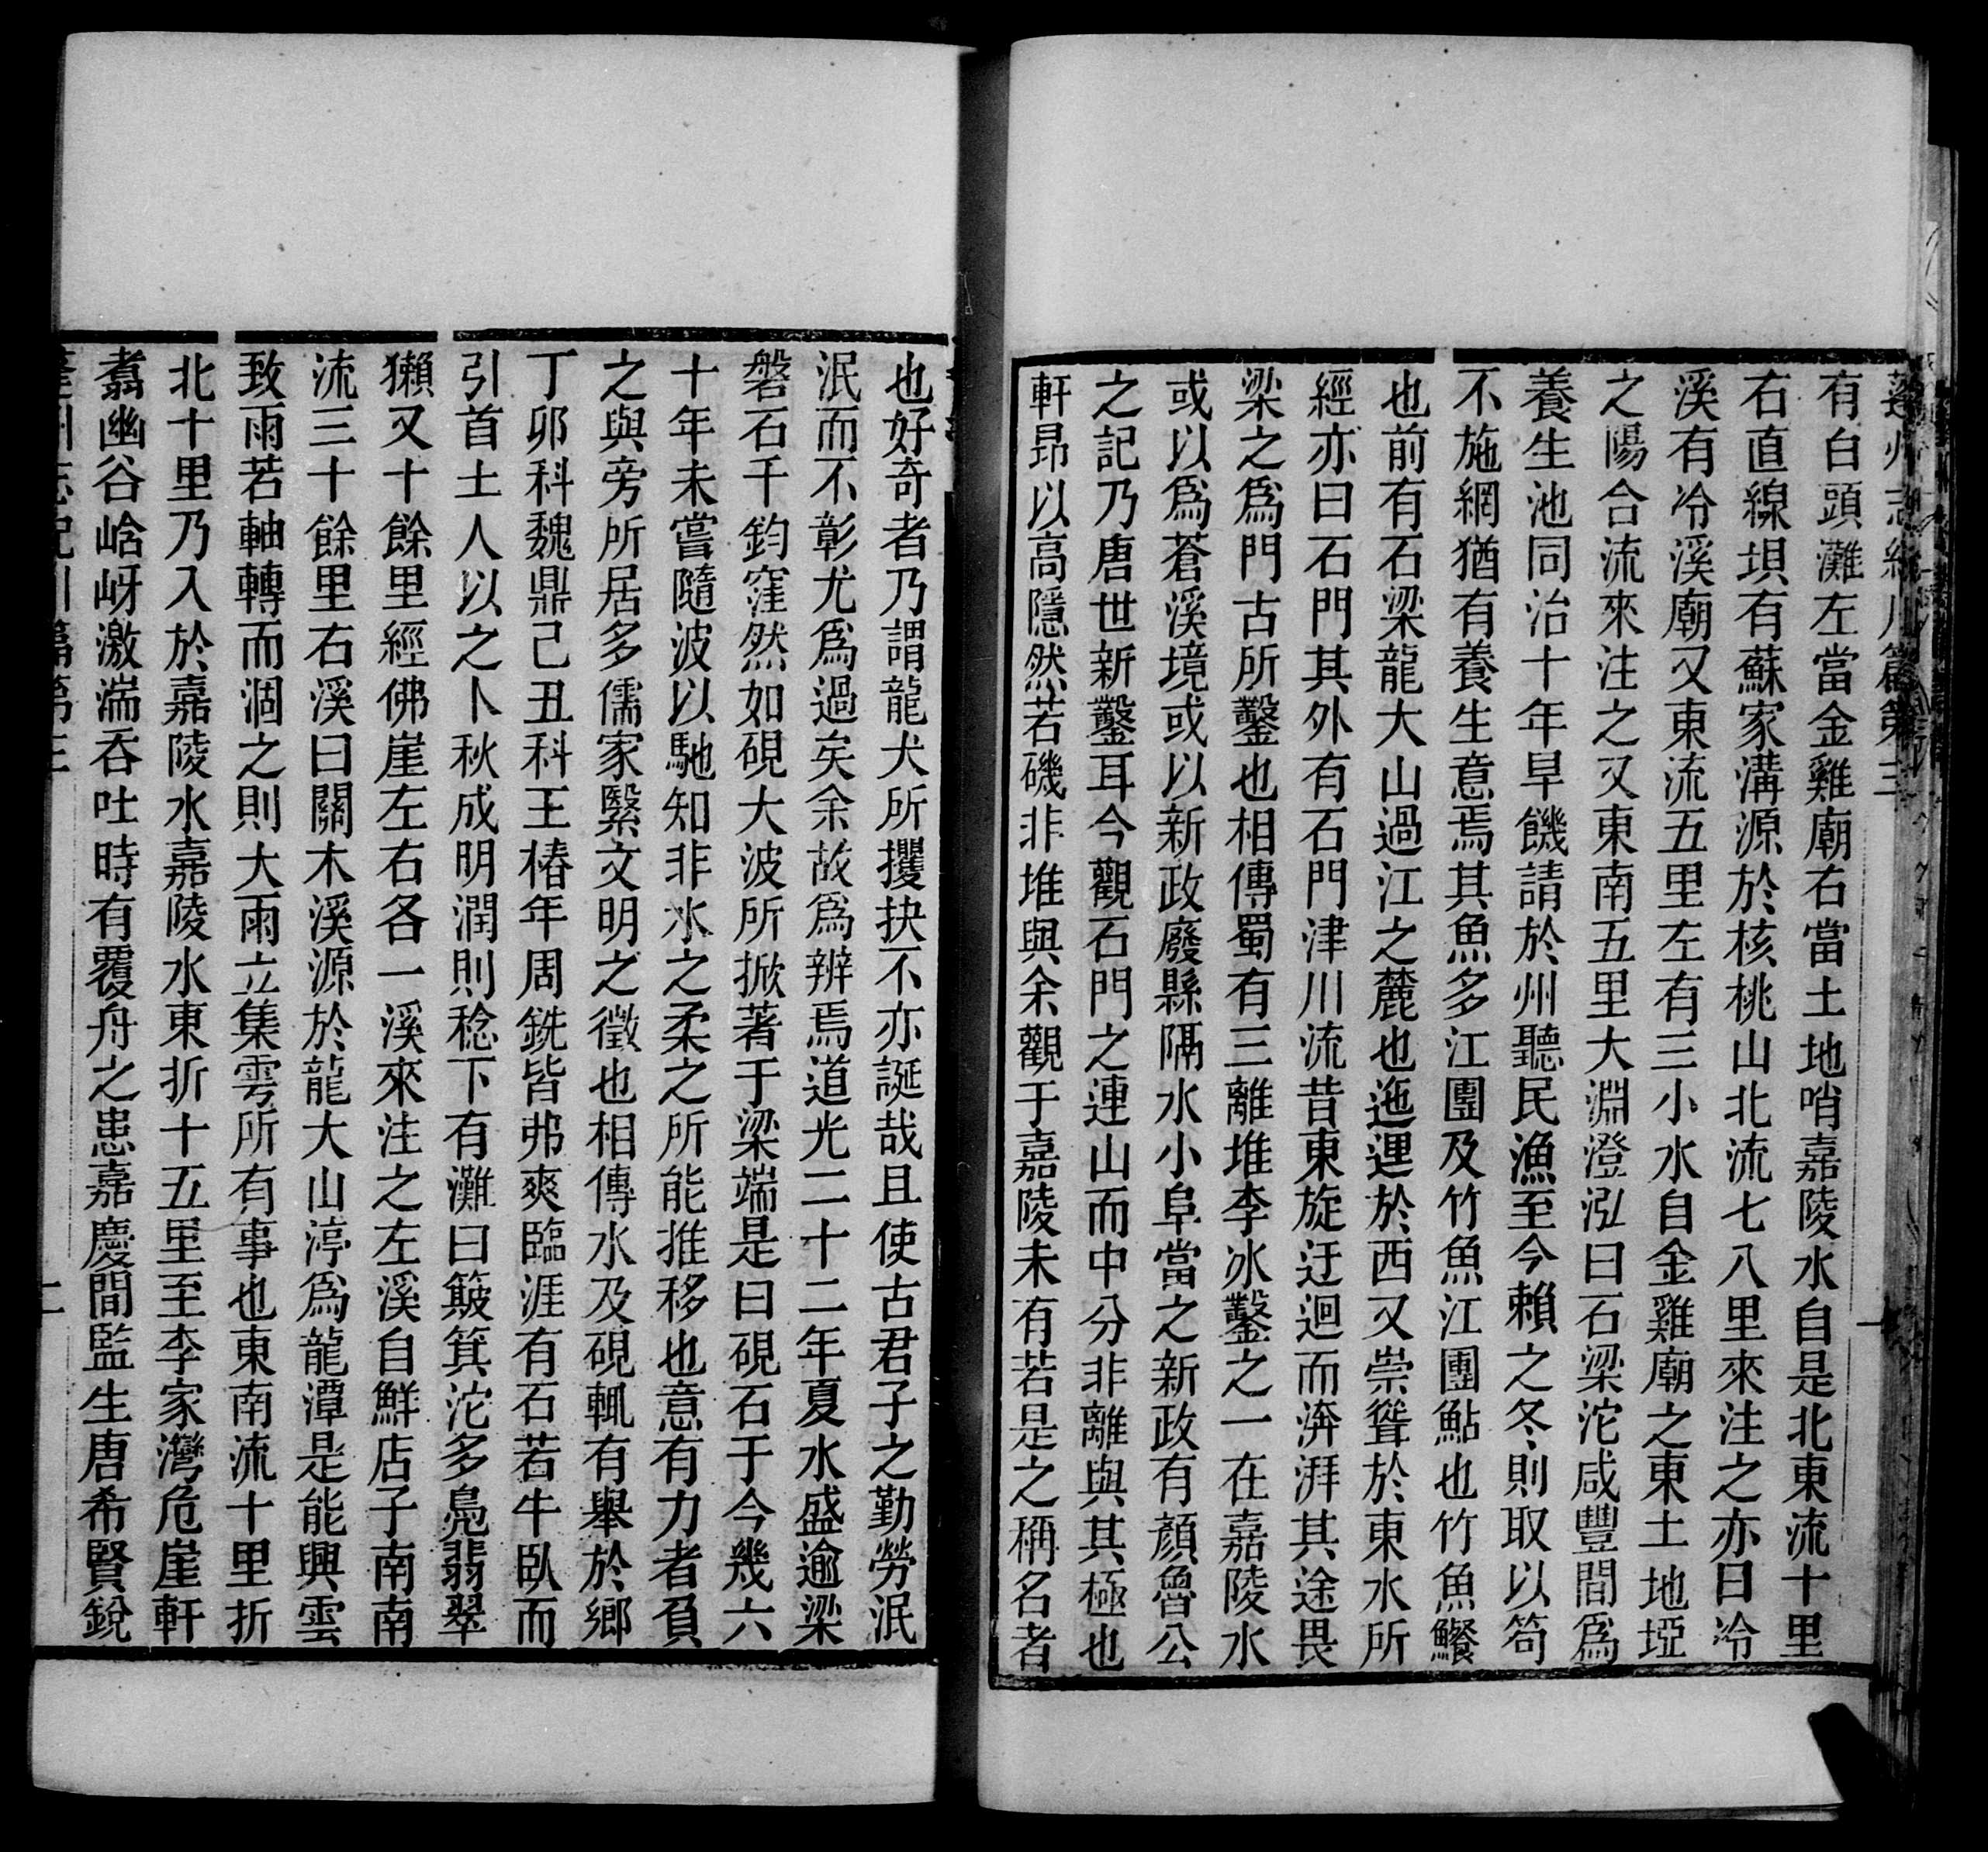 蓬州志紀川篇第三
有白頭灘左當金雞廟右當土地哨嘉陵水自是北東流十里
右直線垻有蘇家溝源於核桃山北流七八里來注之亦曰冷
溪有冷溪廟又東流五里左有三小水自金雞廟之東土地埡
之陽合流來注之又東南五里大淵澄泓曰石梁沱咸豐間爲
養生池同治十年旱饑請於州聽民漁至今賴之冬則取以笱
不施網猶有養生意焉其魚多江團及竹魚江團鮎也竹魚鱟
也前有石梁龍大山過江之麓也迤邐於西又崇聳於東水所
經亦曰石門其外有石門津川流昔東旋迂迴而渀湃其途畏
梁之爲門古所鑿也相傳蜀有三離堆李冰鑿之一在嘉陵水
或以爲蒼溪境或以新政廢縣隔水小阜當之新政有顏魯公
之記乃唐世新鑿耳今觀石門之連山而中分非離與其極也
軒昻以高隱然若磯非堆與余觀于嘉陵未有若是之稱名者
也好奇者乃謂龍犬所攫抉不亦誕哉且使古君子之勤勞泯
泯而不彰尤爲過矣余故爲辨焉道光二十二年夏水盛逾梁
磐石千鈞窪然如硯大波所掀著于梁端是曰硯石于今幾六
十年未嘗隨波以馳知非水之柔之所能推移也意有力者負
之與旁所居多儒家繄文明之徵也相傳水及硯輒有舉於鄉
丁卯科魏鼎己丑科王椿年周銑皆弗爽臨涯有石若牛臥而
引首土人以之卜秋成明潤則稔下有灘曰簸箕沱多鳧翡翠
獺又十餘里經佛崖左右各一溪來注之左溪自鮮店子南南
流三十餘里右溪曰關木溪源於龍大山渟爲龍潭是能興雲
致雨若軸轉而涸之則大雨立集雩所有事也東南流十里折
北十里乃入於嘉陵水嘉陵水東折十五里至李家灣危崖軒
翥幽谷峆岈激湍吞吐時有覆舟之患嘉慶間監生唐希賢銳
蓬州志紀川篇第三